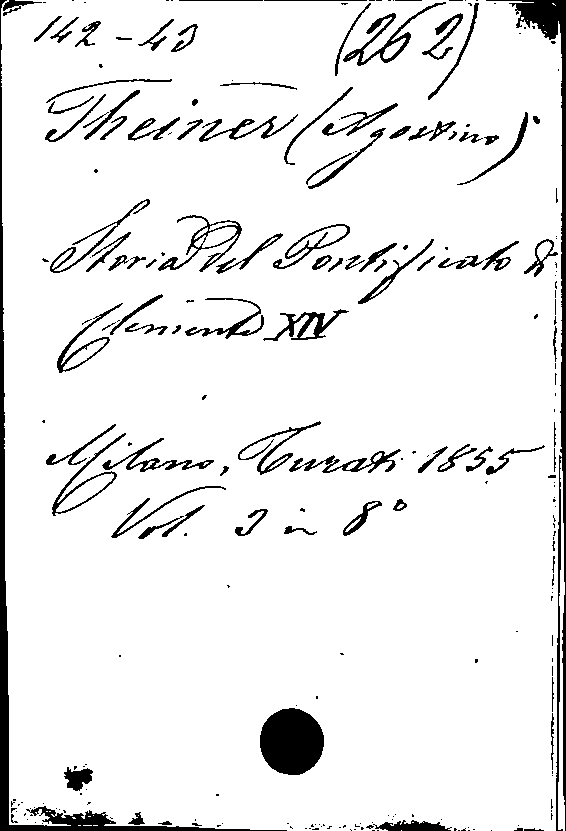 142-43 (262)
Theiner (Agostino)
Storia del Pontificato di
Clemente XIV
Milano, Turati 1855
Vol. 3 in 8°